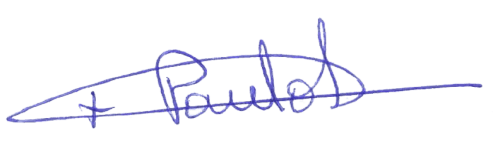 + Paulos